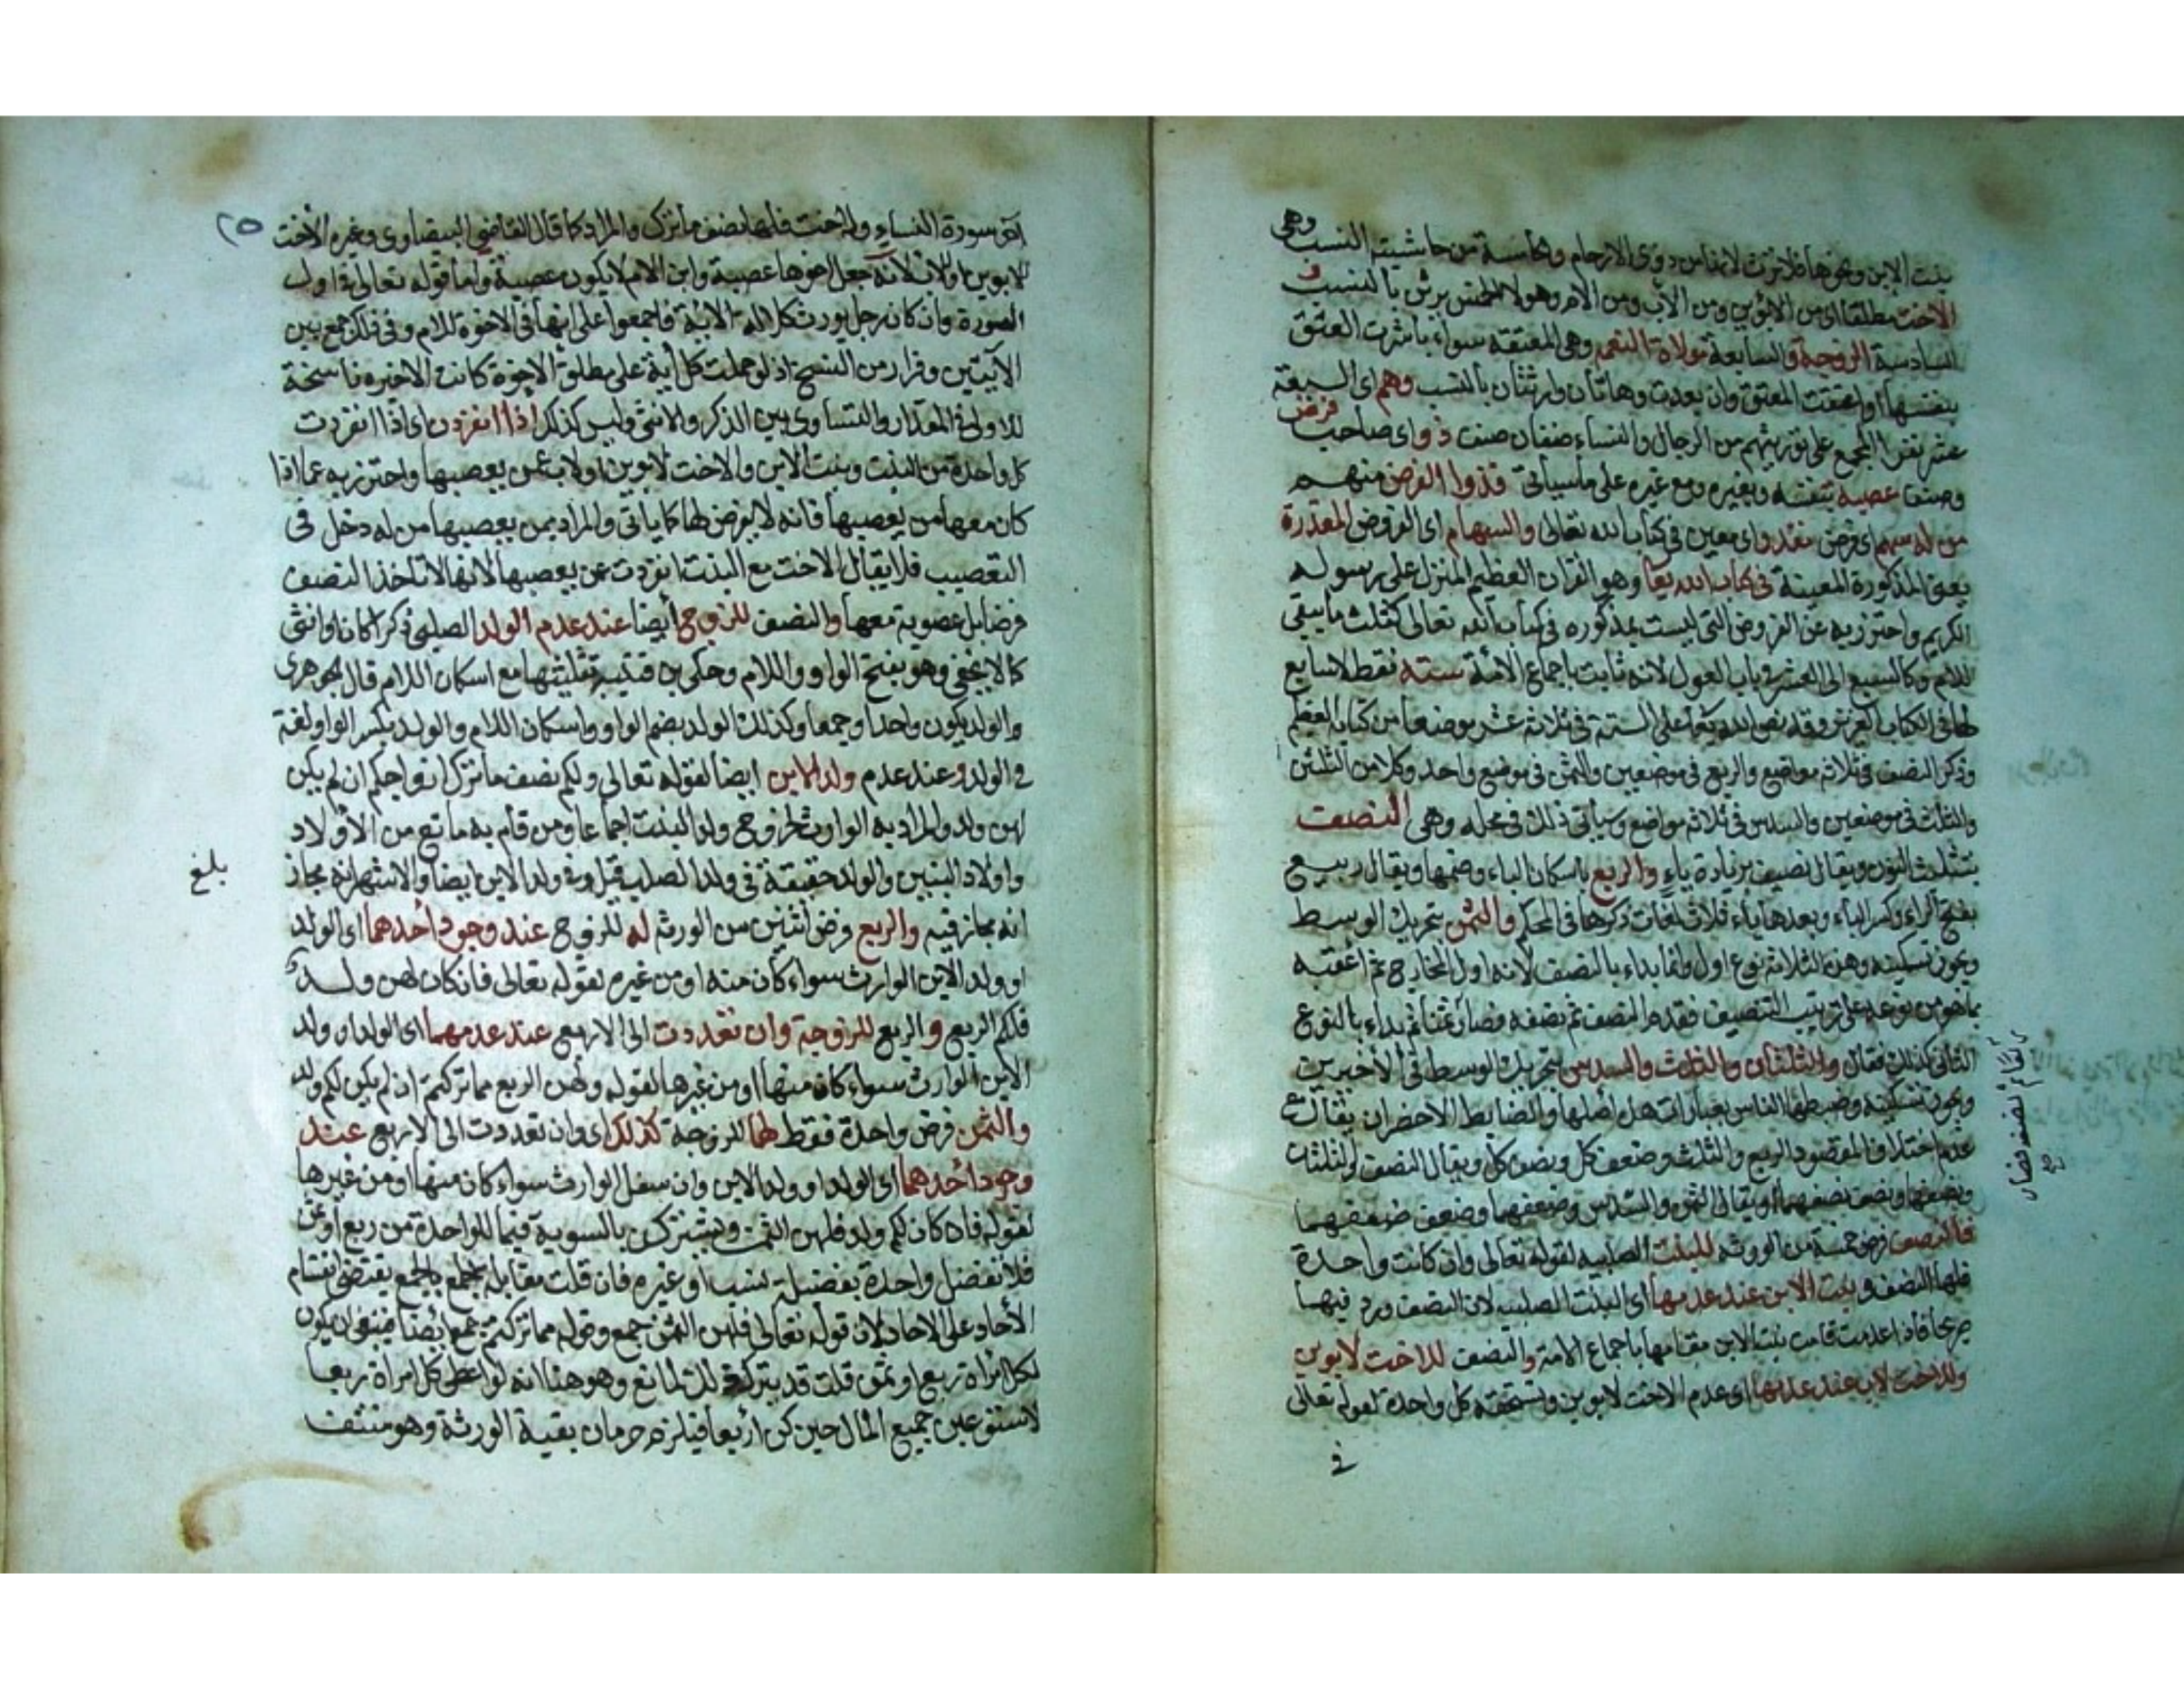 بنت الابن ونحوها فلا ترث لانها من ذوى الارحام والخامسة من حاشية النسب وهى
الاخت مطلقا اى من الابوين ومن الاب ومن الام وهولا الخمس يرثن بالنسب و
السادسة الزوجة والسابعة مولاة النعم وهى المعتقة سواء باشرت العتق
بنفسها او اعتقت المعتق وان بعدت وهاتان وارثتان بالسبب وهم اى السبعة
عشر نفرا المجمع على توريثهم من الرجال والنساء صنفان صنف ذو اى صاحب فرض
وصنف عصبة بنفسه وبغيره ومع غيره على ماسياتى فذوا الفرض منهم
من له سهم اى فرض مقدر اى معين فى كتاب الله تعالى والسهام اى الفروض المقدرة
يعنى المذكورة المعينة فى كتاب الله تعا وهو القران العظيم المنزل على رسوله
الكريم واحترز به عن الفروض التى ليست مذكوره فى كتاب الله تعالى كثلث ما يبقى
للام وكالسبع الى العشر فى باب العول لانه ثابت باجماع الامة ستة فقط لاسابع
لها فى الكتاب العزيز وقد نص الله تعا على الستة فى ثلاثة عشر موضعا من كتابه العظيم
وذكر النصف فى ثلاثة مواضع والربع فى موضعين والثمن فى موضع واحد وكلا من الثلثين
والثلث فى موضعين والسدس فى ثلاثة مواضع وسياتى ذلك فى محله وهى النصف
بتثليث النون ويقال نصيف بزيادة ياء والربع باسكان الباء وضمها ويقال ربيع
بفتح الراء وكسر الباء وبعدها ياء ثلاث لغات ذكرها فى المحكم والثمن بتحريك الوسط
ويجوز تسكينه وهذه الثلاثة نوع اول وانما بداء بالنصف لانه اول المخارج ثم اعقبه
بما هو من نوعه على ترتيب التنصيف فقدم النصف ثم نصفه فصار ثمنا ثم بداء بالنوع
الثانى كذلك فقال والثلثان والثلث والسدس بتحريك الوسط فى الاخيرين
ويجوز تسكينه وضبطها الناس بعبارات هل اصلها والضابط الاخصر ان يقال مع
عدم اختلاف المقصود الربع والثلث وضعف كل ونصف كل ويقال النصف والثلثان
ونصفها ونصف نصفهما او يقال الثمن والسدس وضعفهما وضعف ضعفهما
فالنصف فرض خمسة من الورثه للبنت الصلبيه لقوله تعالى وان كانت واحدة
فلها النصف و بنت الابن عند عدمها اى البنت الصلبيه لان النصف ورد فيها
صريحا فاذا عدمت قامت بنت الابن مقامها باجماع الامة والنصف للاخت لابوين
وللاخت لاب عند عدمها اى عدم الاخت لابوين وتستحقه كل واحدة لقوله تعالى
فى
٢٥
اخر سورة النساء وله اخت فلها نصف ما ترك والمراد كما قال القاضى البيضاوى وغيره الاخت
للابوين او لاب لانه جعل اخوها عصبة وابن الام لا يكون عصبة واما قوله تعالى فى اول
السورة وان كان رجل يورث كلالة الاية فاجمعوا على انها فى الاخوة للام وفى ذلك جمع بين
الآيتين وفرار من النسخ اذ لو حملت كل اية على مطلق الاخوة كانت الاخيره ناسخة
للاولى فى المقدار والتساوى بين الذكر والانثى وليس كذلك اذا انفردن اى اذا انفردت
كل واحدة من البنت وبنت الابن والاخت لابوين او لاب عمن يعصبها واحترز به عما اذا
كان معها من يعصبها فانه لا يفرض لها كما ياتى والمراد بمن يعصبها من له دخل فى
التعصيب فلا يقال الاخت مع البنت انفردت عمن يعصبها لانها لا تاخذ النصف
فرضا بل عصوبة معها والنصف للزوج ايضا عند عدم الولد الصلبى ذكرا كان او انثى
كما لا يخفى وهو بفتح الواو واللام وحكى بن قتيبة تثليثها مع اسكان اللام قال الجوهرى
والولد يكون واحدا وجمعا وكذلك الولد بضم الواو واسكان اللام والولد بكسر الواو لغة
فى الولد وعند عدم ولد الابن ايضا لقوله تعالى ولكم نصف ما ترك ازواجكم ان لم يكن
لهن ولد والمراد به الوارث للزوج ولو البنت اجماعا ومن قام به مانع من الاولاد
واولاد البنين والولد حقيقة فى ولد الصلب قيل وفى ولد الابن ايضا والاشهر انه مجاز
بلغ
انه مجاز فيه والربع فرض اثنين من الورثه له للزوج عند وجود احدهما اى الولد
او ولد الابن الوارث سواء كان منه او من غيره لقوله تعالى فان كان لهن ولد
فلكم الربع و الربع للزوجة وان تعددت الى الاربع عند عدمهما اى الولد او ولد
الابن الوارث سواء كان منها او من غيرها لقوله ولهن الربع مما تركتم ان لم يكن لكم ولد
والثمن فرض واحدة فقط لها للزوجة كذلك اى وان تعددت الى الاربع عند
وجود احدهما اى الولد او ولد الابن وان سفل الوارث سواء كان منها او من غيرها
لقوله فان كان لكم ولد فلهن الثمن ويشتركن بالسوية فيما للواحدة من ربع او ثمن
فلا تفضل واحدة بفضيلة نسب او غيره فان قلت مقابلة الجمع بالجمع يقتضى انقسام
الأحاد على الاحاد لان قوله تعالى فلهن الثمن جمع وقوله مما تركتم جمع ايضا فينبغى ان يكون
لكل امراة ربع او ثمن قلت قد يترك ذلك لمانع وهو هنا انه لو اعطى كل امراة ربعا
لاستغرقن جميع المال حين كن اربعا فيلزم حرمان بقية الورثة وهو منتف